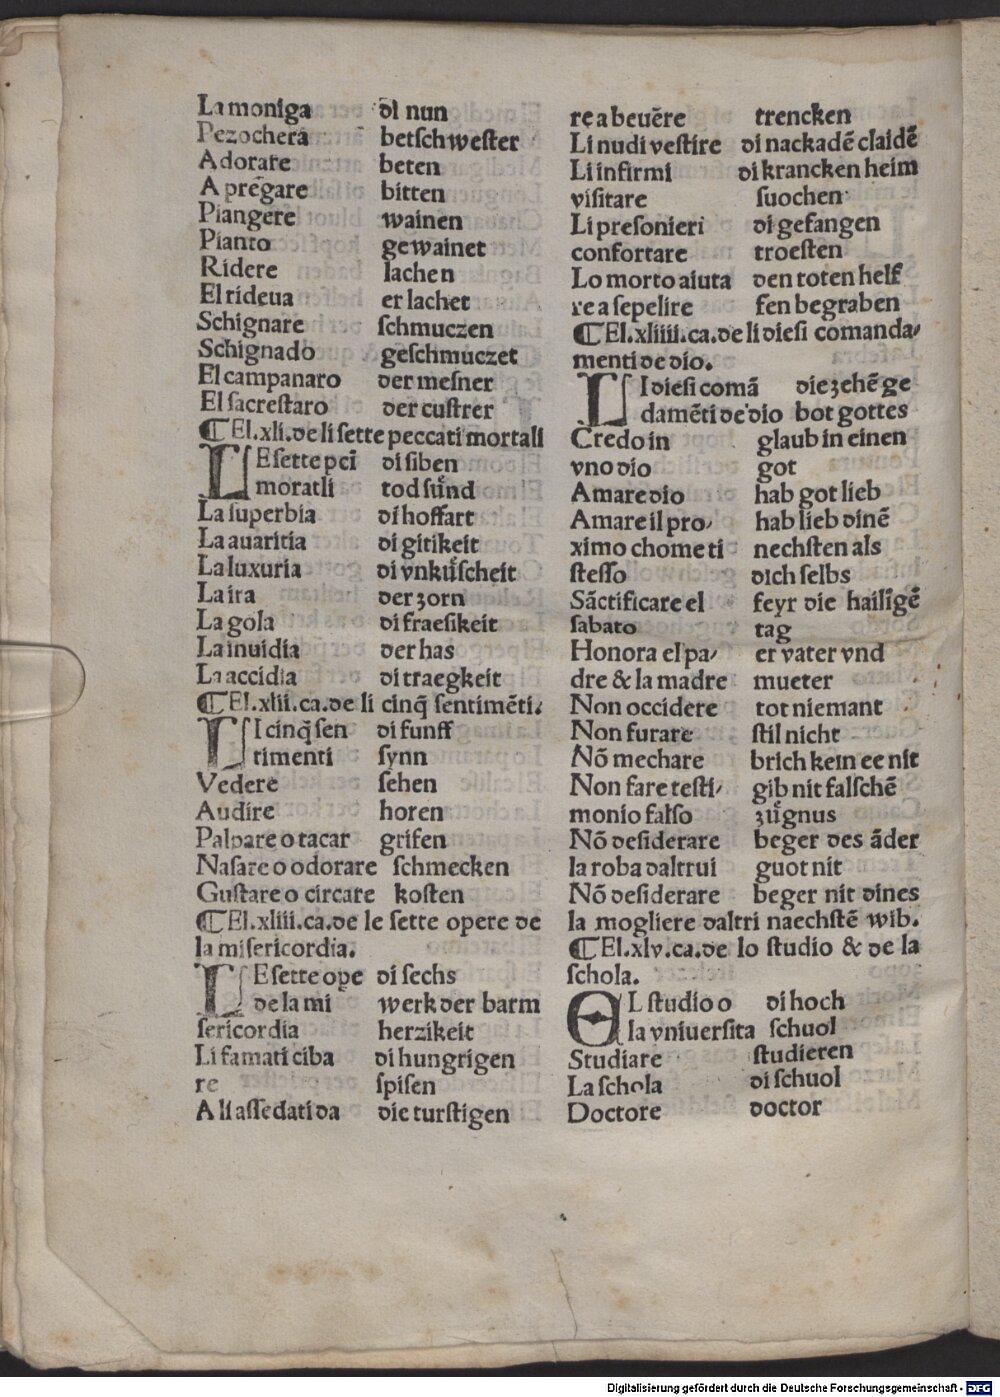 La moniga di nun
Pezochera betschwester
Adorare beten
A pregare bitten
Piangere wainen
Pianto gewainet
Ridere lachen
El rideua er lachet
Schignare schmuczen
Schignado geschmuczet
El campanaro der mesner
El sacrestaro der custrer
¶ El.xli.de li sette peccati mortali
LE sette pcī di siben
moratli tod sünd
La superbia di hoffart
La auaritia di gitikeit
La luxuria di vnküscheit
La ira der zorn
La gola di fraesikeit
La inuidia der has
La accidia di traegkeit
¶ El.xlii.ca.de li cinq̄ sentimēti.
LI cinq̄ sen di funff
timenti synn
Vedere sehen
Audire horen
Palpare o tacar grifen
Nasare o odorare schmecken
Gustare o circare kosten
¶ El.xliii.ca.de le sette opere de
la misericordia.
LE sette ope di sechs
de la mi werk der barm
sericordia herzikeit
Li famati ciba di hungrigen
re spisen
A li assedati da die turstigen
re a beuēre trencken
Li nudi vestire di nackadē claidē
Li infirmi di krancken heim
visitare suochen
Li presonieri di gefangen
confortare troesten
Lo morto aiuta den toten helf
re a sepelire fen begraben
¶ El.xliiii.ca.de li diesi comanda⸗
menti de dio.
LI diesi comā die zehē ge
damēti de dio bot gottes
Credo in glaub in einen
vno dio got
Amare dio hab got lieb
Amare il pro⸗ hab lieb dinē
ximo chome ti nechsten als
stesso dich selbs
Sāctificare el feyr die hailigē
sabato tag
Honora el pa⸗ er vater vnd
dre & la madre mueter
Non occidere tot niemant
Non furare stil nicht
Nō mechare brich kein ee nit
Non fare testi⸗ gib nit falschē
monio falso zügnus
Nō desiderare beger des āder
la roba daltrui guot nit
Nō desiderare beger nit dines
la mogliere daltri naechstē wib.
¶ El.xlv.ca.de lo studio & de la
schola.
EL studio o di hoch
la vniuersita schuol
Studiare studieren
La schola di schuol
Doctore doctor
Digitalisierung gefördert durch die Deutsche Forschungsgemeinschaft - DFG